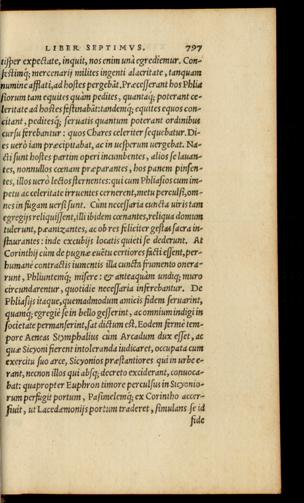 LIBER SEPTIMVS. 797
tisper expectate, inquit, nos enim unà egrediemur. Con-
festimq́; mercenarij milites ingenti alacritate, tanquam
numine afflati, ad hostes pergebāt. Præcesserant hos Phlia
siorum tam equites quàm pedites, quantaq́; poterant ce-
leritate ad hostes festinabāt: tandemq́; equites equos con-
citant, peditesq́; seruatis quantum poterant ordinibus
cursu ferebantur: quos Chares celeriter sequebatur. Di-
es uerò iam præcipitabat, ac in uesperum uergebat. Na-
cti sunt hostes partim operi incumbentes, alios se lauan-
tes, nonnullos cœnam præparantes, hos panem pinsen-
tes, illos uerò lectos sternentes: qui cum Phliasios cum im-
petu ac celeritate irruentes cernerent, metu perculsi, om-
nes in fugam uersi sunt. Cùm necessaria cuncta uiris tam
egregijs reliquissent, illi ibidem cœnantes, reliqua domum
tulerunt, pæanizantes, ac ob res feliciter gestas sacra in-
staurantes: inde excubijs locatis quieti se dederunt. At
Corinthij cùm de pugnæ euētu certiores facti essent, per-
humanè contractis iumentis illa cuncta frumento onera-
runt, Phliuntemq́; misere: & anteaquàm undiq; muro
circundarentur, quotidie necessaria inferebantur. De
Phliasijs itaque, quemadmodum amicis fidem seruarint,
quamq́; egregiè se in bello gesserint, ac omnium indigi in
societate permanserint, sat dictum est. Eodem fermè tem-
pore Aeneas Stymphalius cùm Arcadum dux esset, ac
quæ Sicyoni fierent intoleranda iudicaret, occupata cum
exercitu suo arce, Sicyonios præstantiores qui in urbe e-
rant, necnon illos qui absq; decreto exciderant, conuoca-
bat: quapropter Euphron timore perculsus in Sicyonio-
rum perfugit portum, Pasimelemq́; ex Corintho accer-
siuit, ut Lacedæmonijs portum traderet, simulans se id
fide